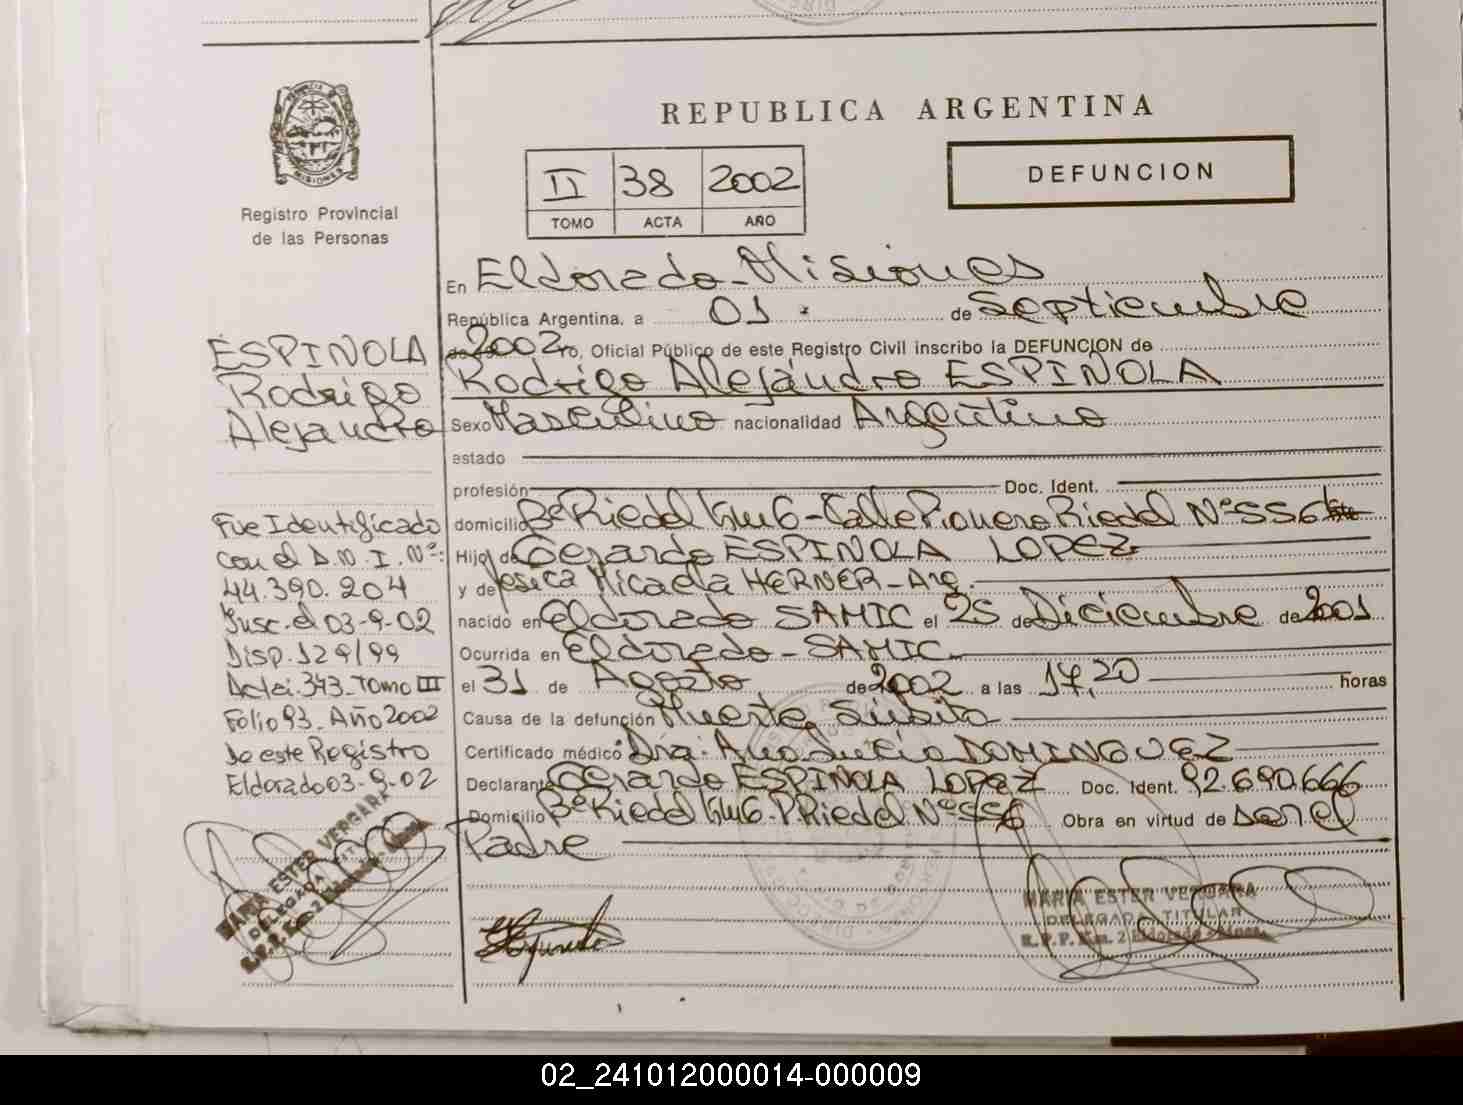 REPUBLICA ARGENTINA
DEFUNCION
II 38 2002
TOMO ACTA AÑO
PROVINCIA DE
MISIONES
Registro Provincial
de las Personas
ESPINOLA
Rodrigo
Alejandro
Fue Identificado
con el D.N.I. Nº:
44.390.204
Insc. el 03-9-02
Disp. 129/99
Acta: 343 - Tomo III
Folio 93 - Año 2002
de este Registro
Eldorado 03-9-02
MARIA ESTER VERGARA
DELEGADA TITULAR
R.P.P. Km. 2 Eldorado Mnes.
En Eldorado - Misiones
República Argentina, a 01 de Septiembre
2002 ro, Oficial Público de este Registro Civil inscribo la DEFUNCION de
Rodrigo Alejandro ESPINOLA
Sexo Masculino nacionalidad Argentino
estado
profesión Doc. Ident.
domicilio Bº Riedel Km 6 - Calle Pionero Riedel Nº 556
Hijo de Gerardo ESPINOLA LOPEZ
y de Jesica Micaela HERNER - Arg.
nacido en Eldorado SAMIC el 25 de Diciembre de 2001
Ocurrida en Eldorado - SAMIC
el 31 de Agosto de 2002 a las 17,20 horas
Causa de la defunción Muerte Súbita
Certificado médico: Dra: Ana Lucia DOMINGUEZ
Declarante Gerardo ESPINOLA LOPEZ Doc. Ident. 92.690.666
Domicilio Bº Riedel Km 6 - P. Riedel Nº 556 Obra en virtud de ser el
Padre
MARIA ESTER VERGARA
DELEGADA TITULAR
R.P.P. Km. 2 Eldorado Mnes.
02_241012000014-000009